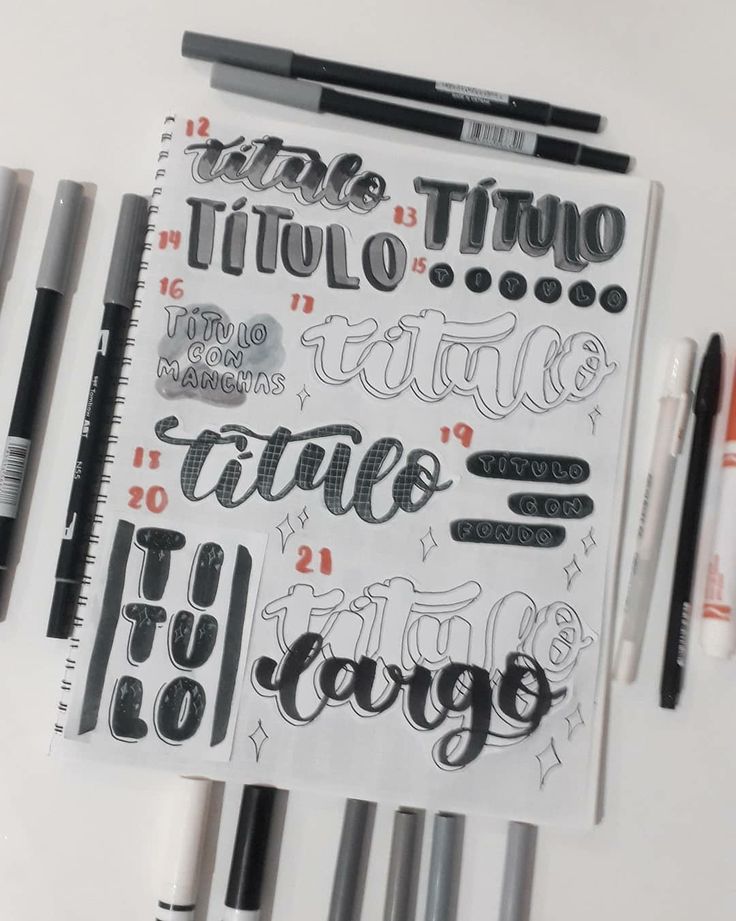 12
título
13
TÍTULO
14
TÍTULO
15
TITULO
16
TÍTULO
CON
MANCHAS
17
título
18
título
19
TÍTULO
CON
FONDO
20
TI
TU
LO
21
título
largo
Tombow ABT
N55